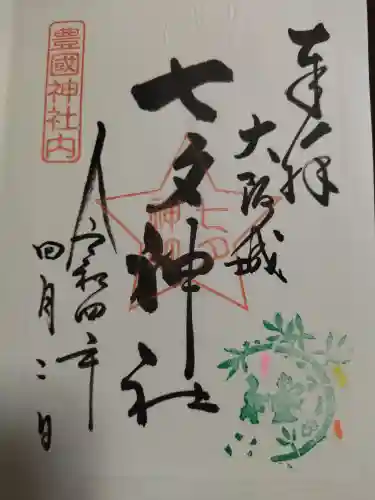 奉拝
大阪城
七夕神社
豊國神社内
令和四年
四月二日
七夕
神社